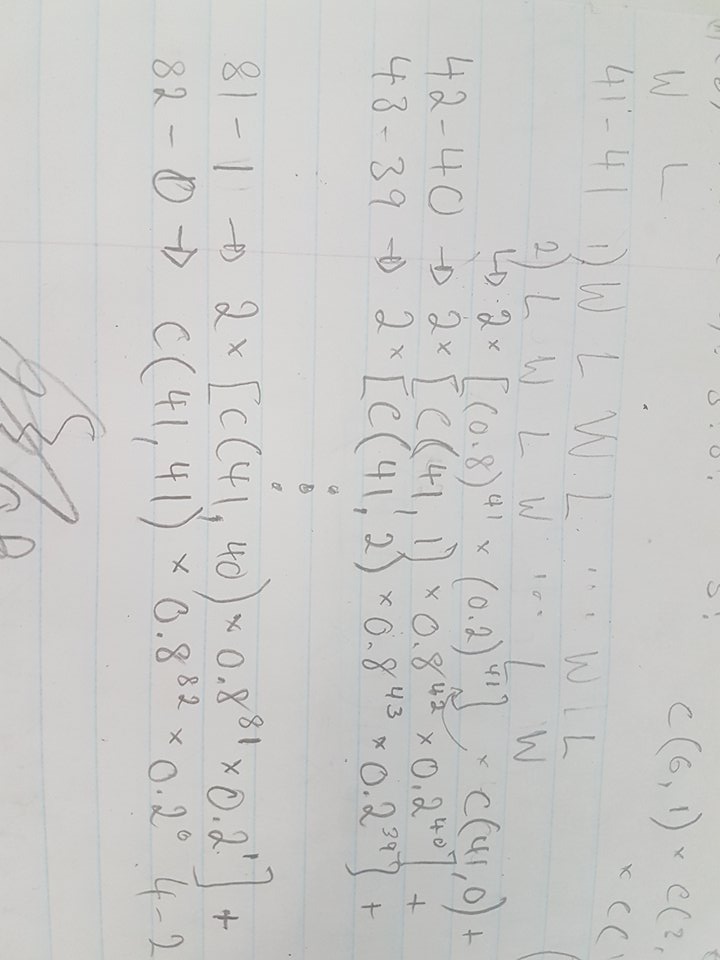 C(6,1) × C(2,
× C(
W L
41-41 1) W L W L ... W L
2) L W L W ... L W
↳ 2 × [(0.8)^41 × (0.2)^41] × C(41,0) +
42-40 → 2 × [C(41,1) × 0.8^42 × 0.2^40] +
43-39 → 2 × [C(41,2) × 0.8^43 × 0.2^39] +
⋮
81-1 → 2 × [C(41,40) × 0.8^81 × 0.2^1] +
82-0 → C(41,41) × 0.8^82 × 0.2^0
4-2